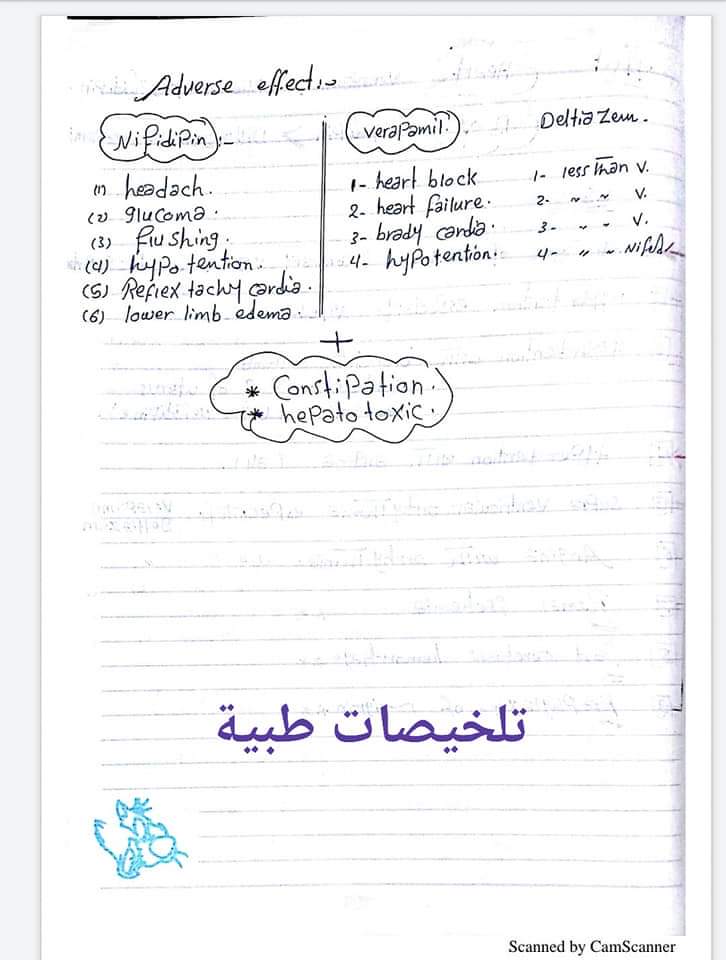 Adverse effect:-
Nifidipin :-
(1) headach.
(2) glucoma.
(3) flushing.
(4) hypotention.
(5) Reflex tachy cardia.
(6) lower limb edema.
verapamil.
1- heart block
2- heart failure.
3- brady cardia.
4- hypotention.
Deltiazem.
1- less than v.
2- ~ ~ v.
3- ~ ~ v.
4- " ~ Nifed
+
* Constipation.
* hepato toxic.
تلخيصات طبية
Scanned by CamScanner